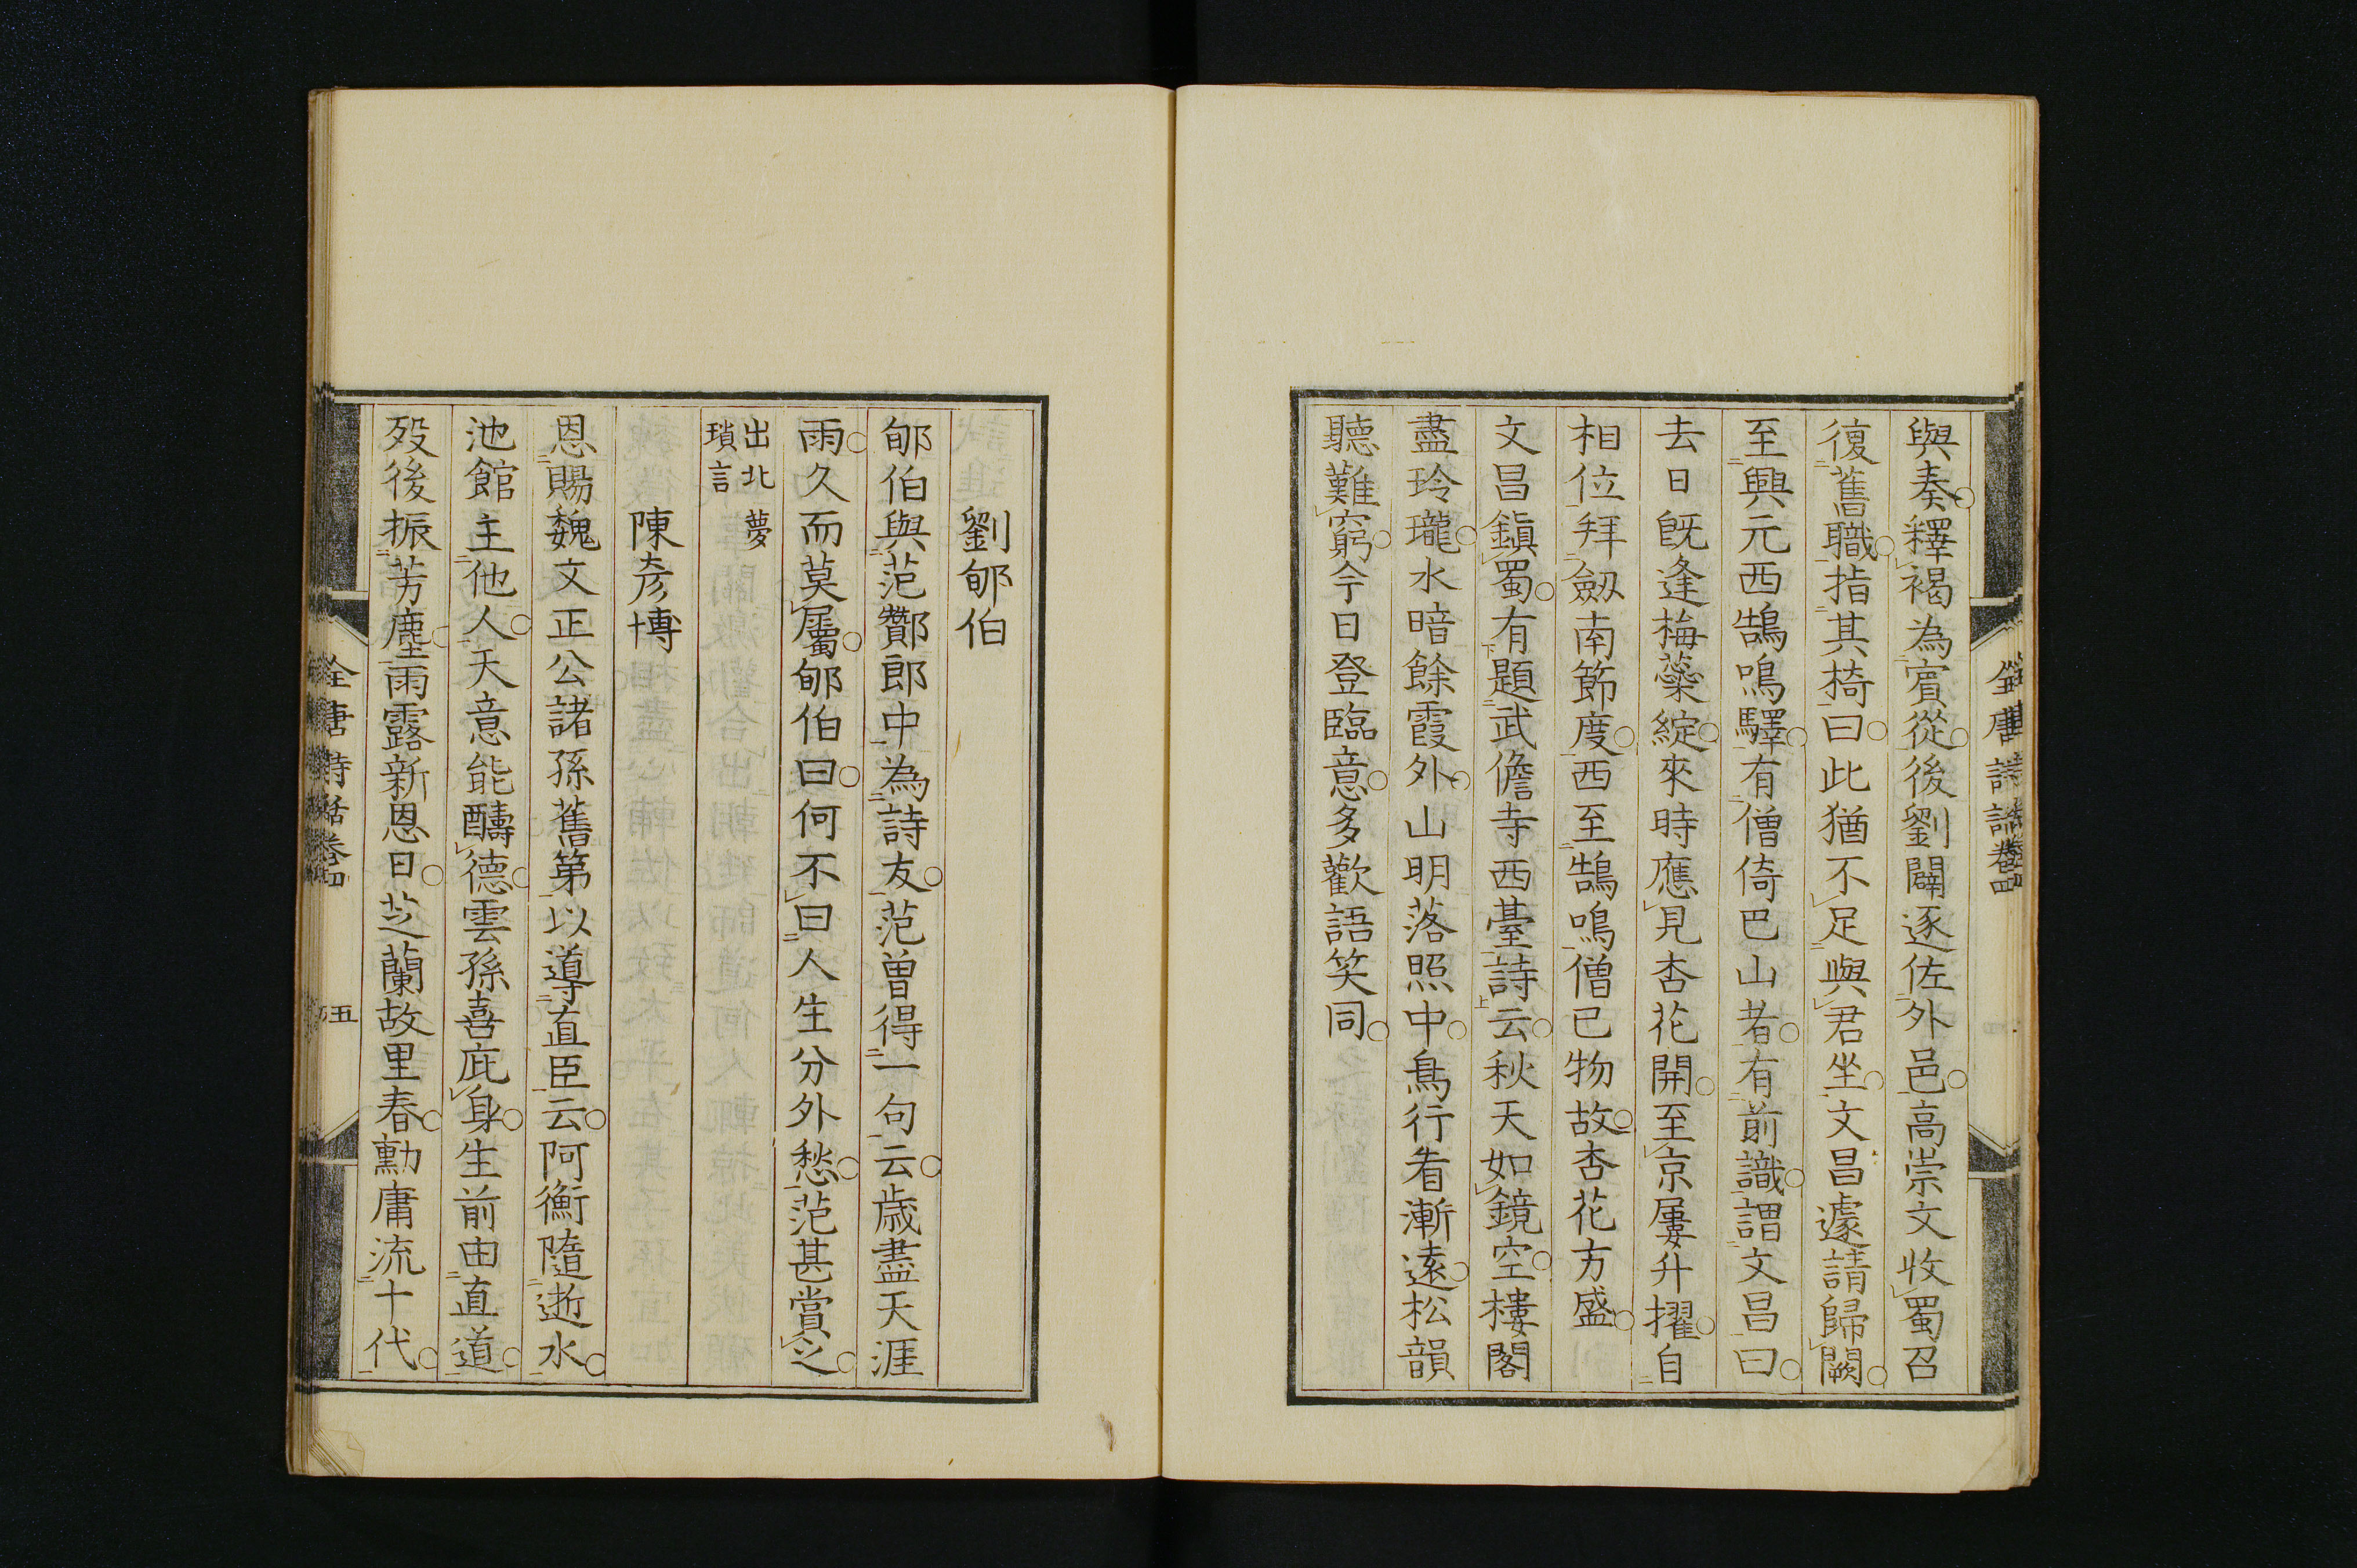 與奏釋褐為賓從後劉闢逐佐外邑高崇文收蜀召
復舊職指其椅曰此猶不足與君坐文昌遽請歸闕
至興元西鵠鳴驛有僧倚巴山者有前識謂文昌曰
去日旣逢梅蘂綻來時應見杏花開至京屢升擢自
相位拜劔南節度西至鵠鳴僧已物故杏花方盛
文昌鎭蜀有題武儋寺西臺詩云秋天如鏡空樓閣
盡玲瓏水暗餘霞外山明落照中鳥行看漸遠松韻
聽難窮今日登臨意多歡語笑同
劉郇伯
郇伯與范酇郎中為詩友范曾得一句云歲盡天涯
雨久而莫屬郇伯曰何不曰人生分外愁范甚賞之
出北夢
瑣言
陳彥博
恩賜魏文正公諸孫舊第以導直臣云阿衡隨逝水
池館主他人天意能酬德雲孫喜庇身生前由直道
歿後振芳塵雨露新恩日芝蘭故里春勳庸流十代
全唐詩話卷四
五